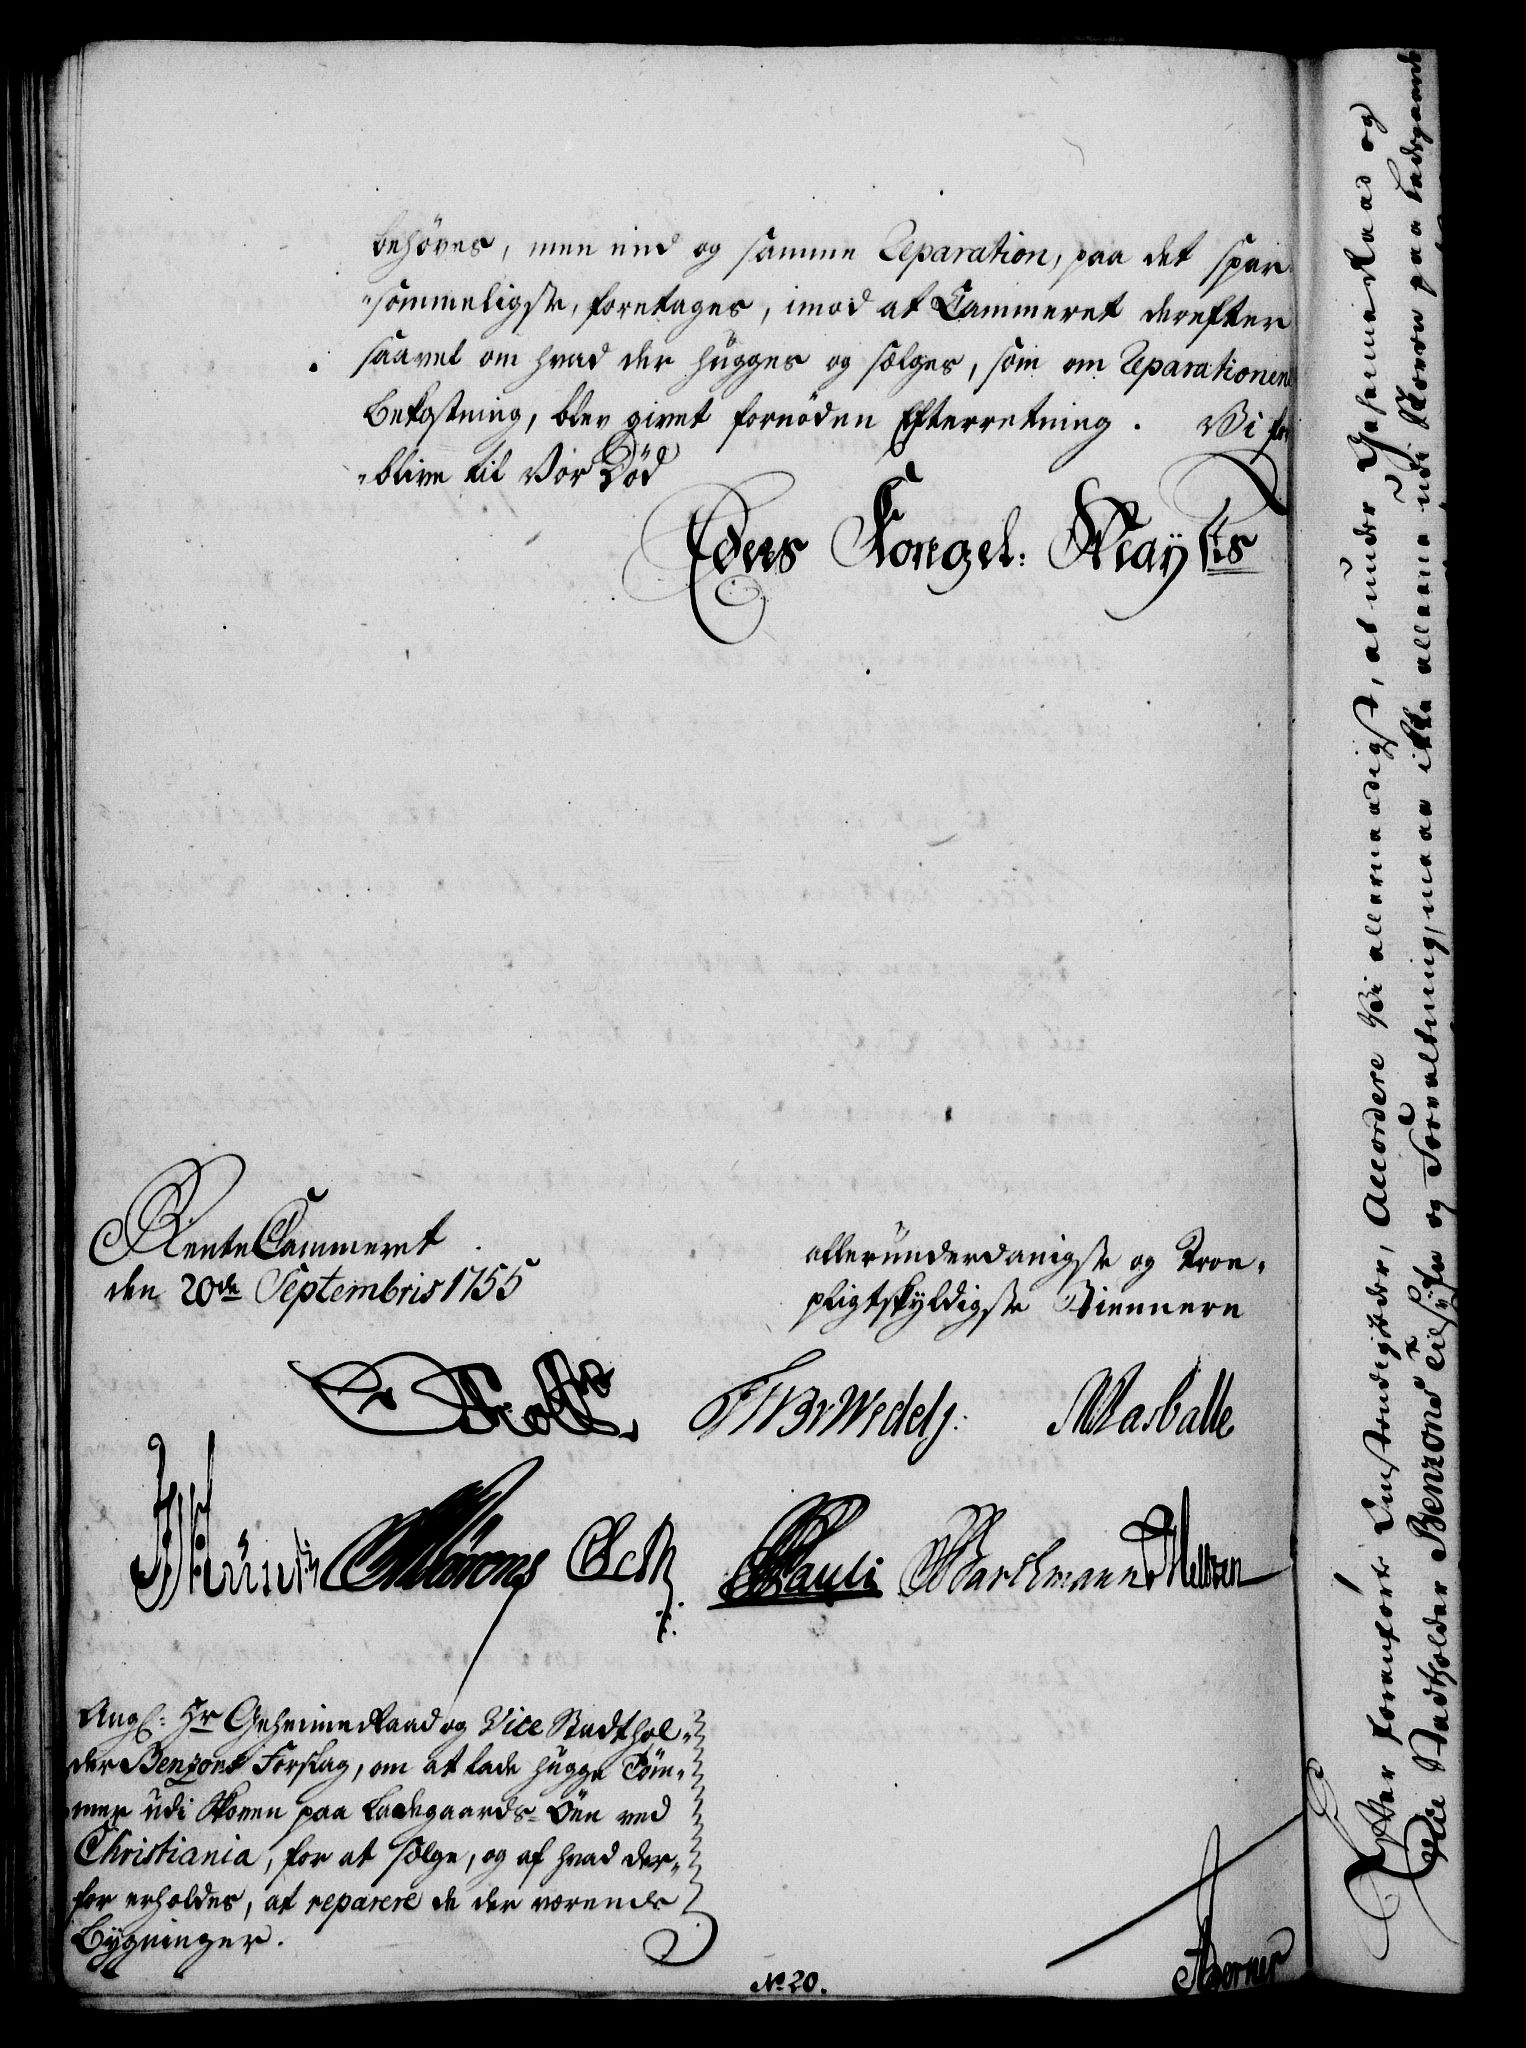 behöves, men ind og samme Reparation, paa det spar
-sommeligste, foretages, imod at Cammeret derefter
saavel om hvad der hugges og sælges, som om Reparationens
Bekostning, blev givet fornöden Efterretning. Vi for
-blive til Vor Död
Eders Kongel: Mayts
RenteCammeret
den 20de Septembris 1755
allerunderdanigste og Troe-
pligtskyldigste Tiennere
Wedely:
Pauli
Ang: Hr GeheimeRaad og Vice Stadthol-
der Benzons Forslag, om at lade hugge Töm-
mer udi Skoven paa Ladegaards-Öen ved
Christiania, for at sælge, og af hvad der-
for erholdes, at reparere de der værende
Bygninger.
No 20.
Efter foranförte Omstændigheder, Accordere Vi allernaadigst, at under GeheimeRaad og
Vice Stadtholder Benzons Tilsÿn og Forvaltning, maae ikke alleene udi Skoven paa Ladegaards